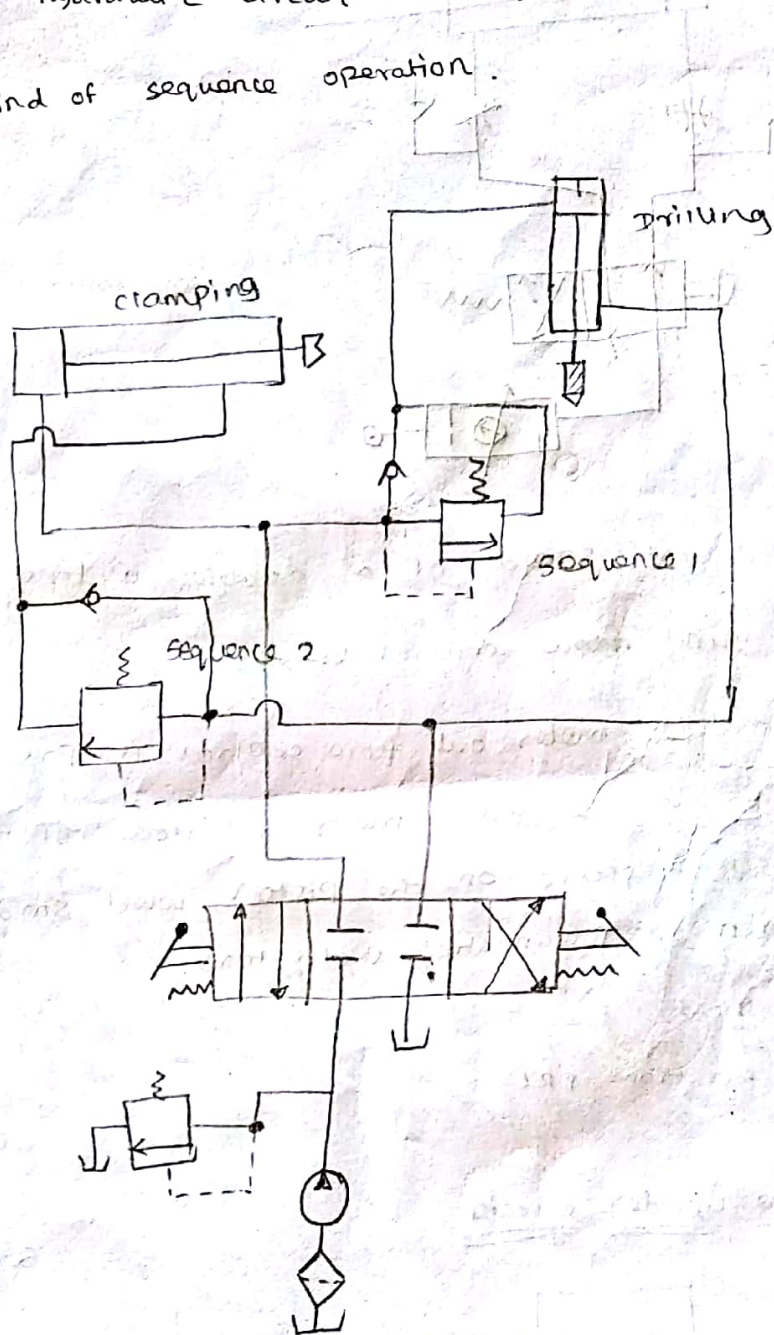 ind of sequence operation.
Drilling
clamping
sequence 1
sequence 2